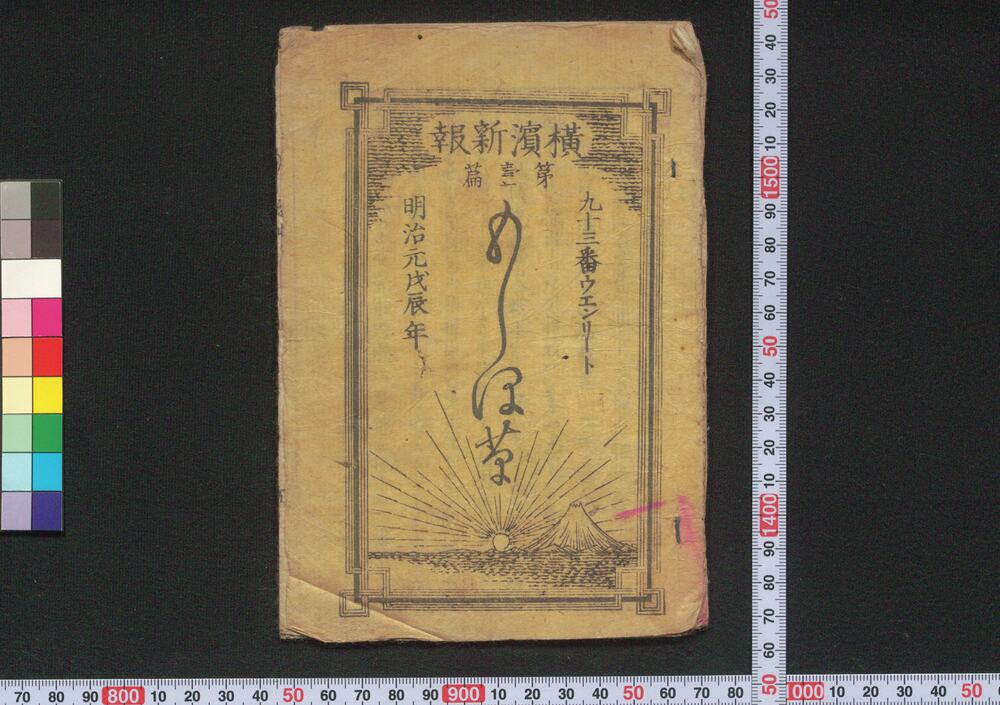 横濱新報
第壹篇
九十三番ウエンリート
もしほ草
明治元戊辰年
70 80 90 800 10 20 30 40 50 60 70 80 90 900 10 20 30 40 50 60 70 80 1000 10 20 30 40 50
50 40 30 20 10 1500 90 80 70 60 50 40 30 20 10 1400 90 80 70 60 50